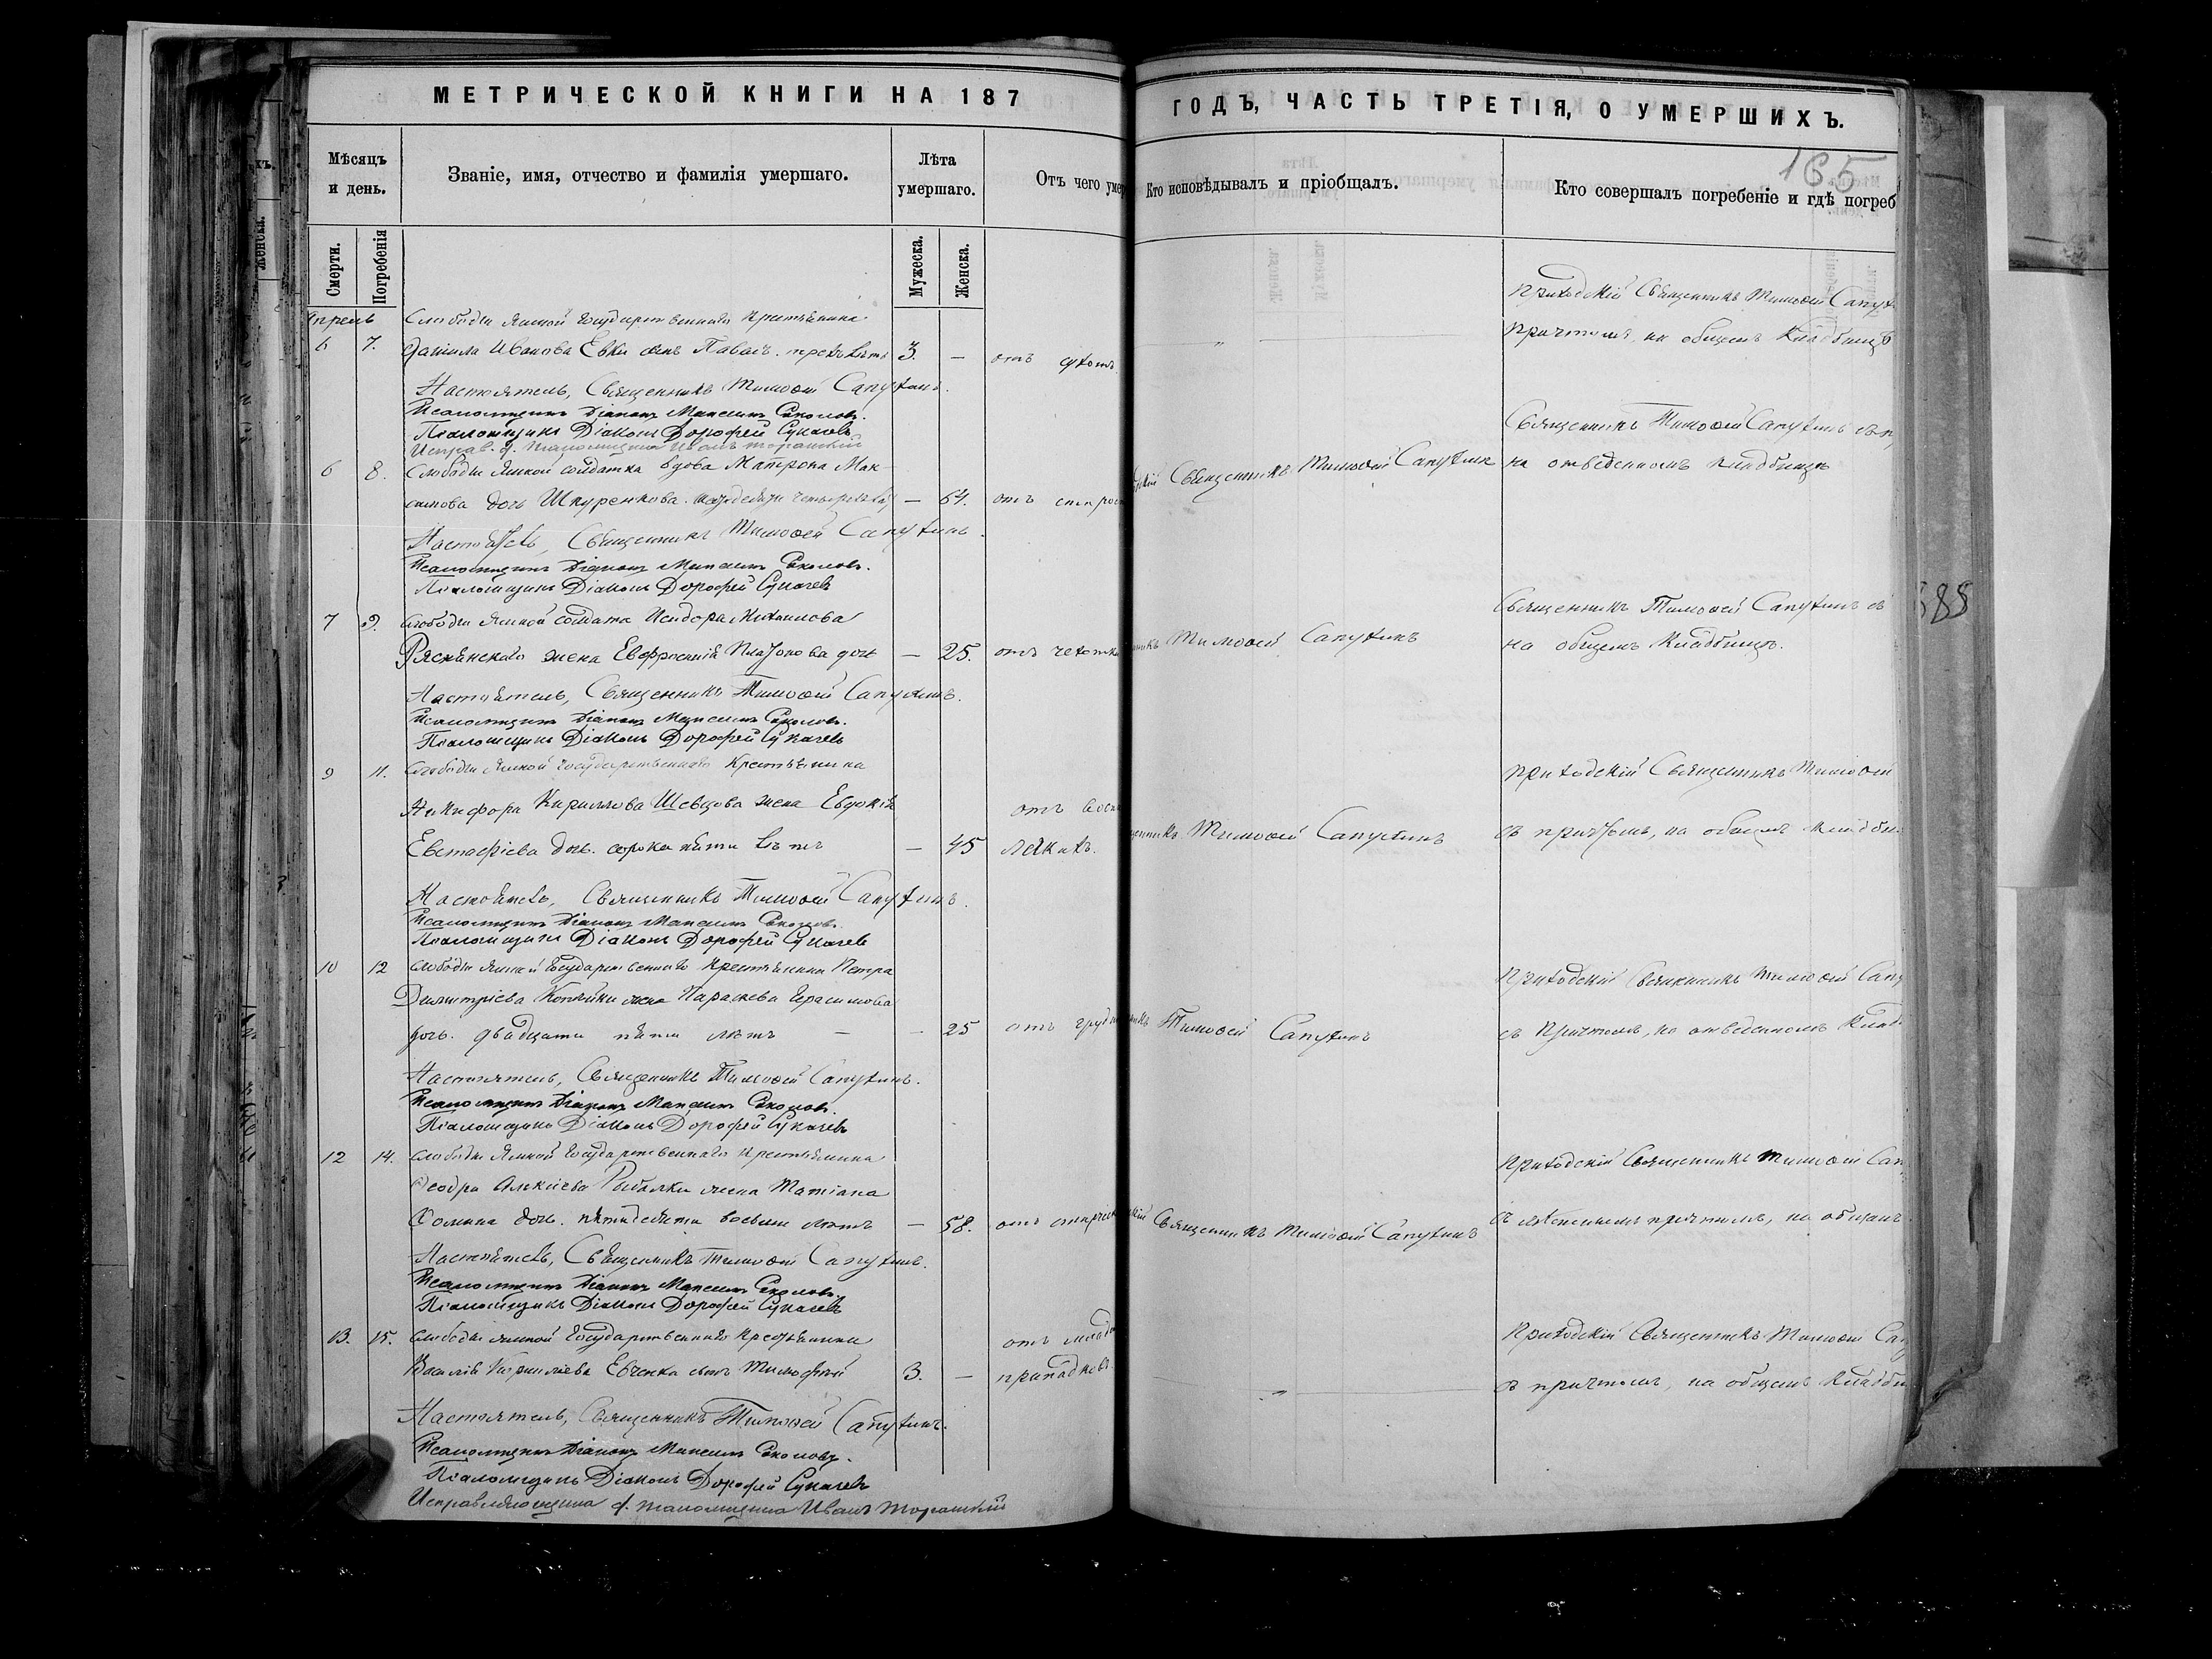 МЕТРИЧЕСКОЙ КНИГИ НА 187
ГОДЪ, ЧАСТЬ ТРЕТІЯ, О УМЕРШИХЪ.
165
Мѣсяцъ и день.
Званіе, имя, отчество и фамилія умершаго.
Лѣта умершаго.
Отъ чего умер
Кто исповѣдывалъ и пріобщалъ.
Кто совершалъ погребеніе и гдѣ погреб
Смерти.
Погребенія
Мужеска.
Женска.
Апрель
Слободы Ямной Государственнаго Крестьянина
6 7. Даніила Иванова Евки сынъ Павелъ. трехъ лѣтъ 3. — отъ сухот
Приходскій Священникъ Тимоѳей Сапух
Причтомъ, на общемъ Кладбищѣ
Настоятель, Священникъ Тимоѳей Сапухинъ.
Псаломщикъ Діаконъ Максимъ Соколовъ.
Псаломщикъ Діаконъ Дорофей Сукачевъ
Исправ. д. Псаломщика Иванъ
6 8. Слободы Ямной солдатка вдова Матрона Мак-
симова дочь Шкуренкова. шестьдесятъ четырехъ — 64. отъ старос
Священникъ Тимоѳей Сапухинъ
Священникъ Тимоѳей Сапухинъ съ п
на отведенномъ кладбищѣ
Настоятель, Священникъ Тимоѳей Сапухинъ.
Псаломщикъ Діаконъ Максимъ Соколовъ.
Псаломщикъ Діаконъ Дорофей Сукачевъ
7 9. Слободы Ямной солдата Исидора Михаилова
Ряснянскаго жена Евфросинія Платонова дочь — 25. отъ чехотки
Тимоѳей Сапухинъ
Священникъ Тимоѳей Сапухинъ съ
на общемъ Кладбищѣ.
Настоятель, Священникъ Тимоѳей Сапухинъ.
Псаломщикъ Діаконъ Максимъ Соколовъ.
Псаломщикъ Діаконъ Дорофей Сукачевъ
9 11. Слободы Ямной Государственнаго Крестьянина
Никифора Кириллова Шевцова жена Евдокія
Евстафіева дочь. сорока пяти лѣтъ — 45
отъ восп
легкихъ.
Тимоѳей Сапухинъ
Приходскій Священникъ Тимоѳей
съ причтомъ, на общемъ кладби
Настоятель, Священникъ Тимоѳей Сапухинъ.
Псаломщикъ Діаконъ Максимъ Соколовъ.
Псаломщикъ Діаконъ Дорофей Сукачевъ
10 12 Слободы Ямной Государственнаго Крестьянина Петра
Димитріева Копѣйки жена Параскева Герасимова
дочь. двадцати пяти лѣтъ — — 25 отъ груд
Тимоѳей Сапухинъ
Приходскій Священникъ Тимоѳей Сапу
съ Причтомъ, на отведенномъ Кладб
Настоятель, Священникъ Тимоѳей Сапухинъ.
Псаломщикъ Діаконъ Максимъ Соколовъ.
Псаломщикъ Діаконъ Дорофей Сукачевъ
12 14. Слободы Ямной Государственнаго Крестьянина
Ѳеодра Алексіева Рыбалки жена Татіана
Ѳомина дочь. пятидесяти восьми лѣтъ — 58. отъ старчес
Священникъ Тимоѳей Сапухинъ
Приходскій Священникъ Тимоѳей Сап
съ мѣстнымъ причтомъ, на общемъ
Настоятель, Священникъ Тимоѳей Сапухинъ.
Псаломщикъ Діаконъ Максимъ Соколовъ.
Псаломщикъ Діаконъ Дорофей Сукачевъ
13. 15. Слободы Ямной Государственнаго Крестьянина
Василія Корнилиева Евченка сынъ Тимофей 3. —
отъ млад
припадковъ.
Приходскій Священникъ Тимоѳей Са
съ причтомъ, на общемъ Кладби
Настоятель, Священникъ Тимоѳей Сапухинъ.
Псаломщикъ Діаконъ Максимъ Соколовъ.
Псаломщикъ Діаконъ Дорофей Сукачевъ
Исправляющій д. псаломщика Иванъ